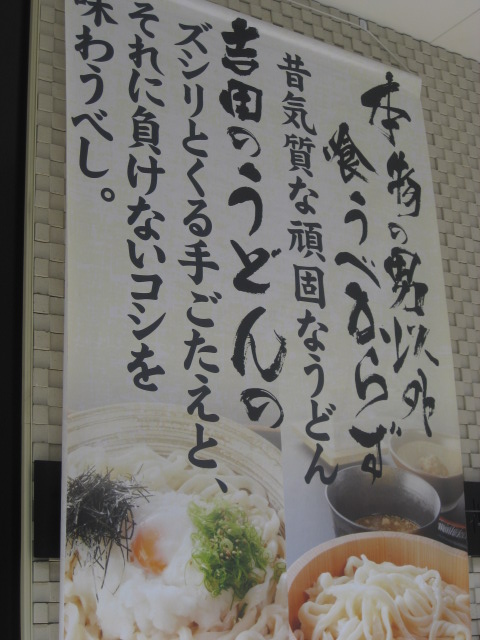 本物の男以外
喰うべからず
昔気質な頑固なうどん
吉田のうどんの
ズシリとくる手ごたえと、
それに負けないコシを
味わうべし。